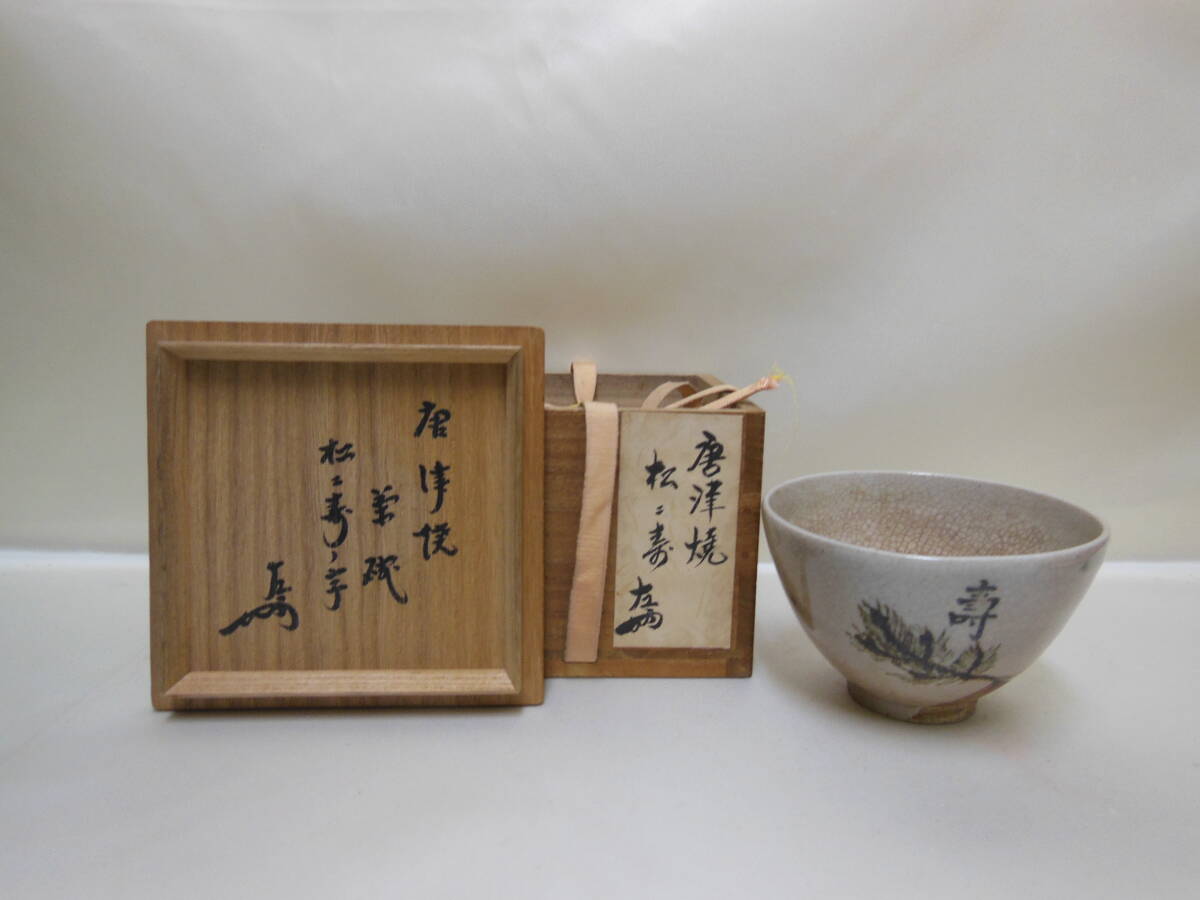 唐津焼
茶碗
松ニ寿ノ字
唐津焼
松ニ寿
寿